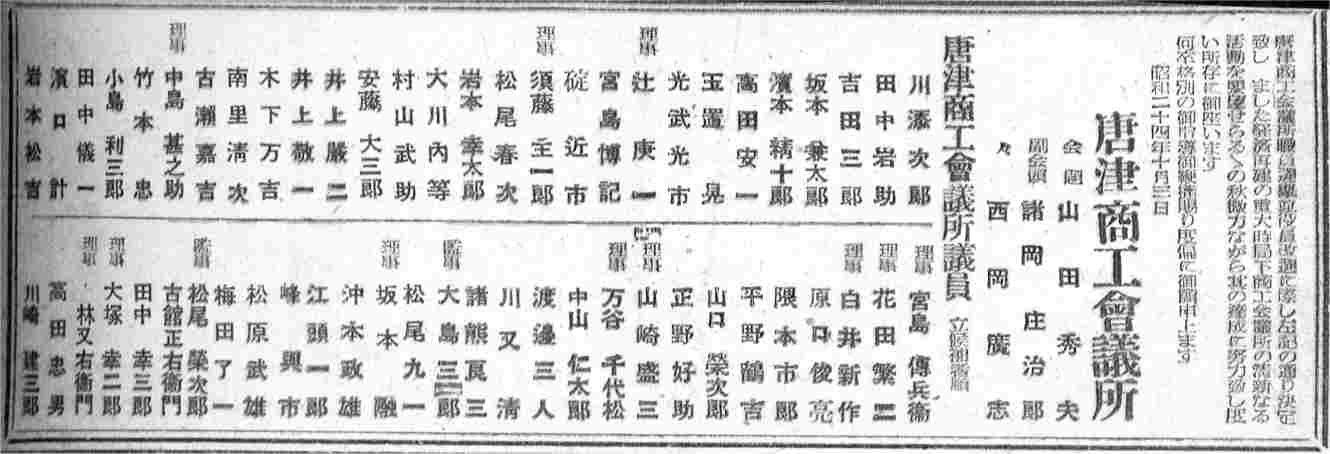 唐津商工会議所職員議員改選に際し左記の通り決定
致し ました経済再建の重大時局下商工会議所の活溌なる
活動を要望せらるゝの秋微力ながら其の達成に努力致し度
い所存に御座います
何卒格別の御指導御鞭撻賜り度偏に御願申上ます
昭和二十四年十月三日
唐津商工會議所
会頭 山田秀夫
副会頭 諸岡庄治郎
々 西岡廣志
唐津商工會議所議員 立候補届順
川添次郎
田中岩助
吉田三郎
坂本兼太郎
濱本精十郎
高田安一
玉置晃
光武光市
理事 辻庚一
宮島博記
碇近市
理事 須藤圭一郎
松尾春次
岩本幸太郎
大川内等
村山武助
安藤大三郎
井上嚴二
井上敬一
木下万吉
南里淸次
古瀬嘉吉
理事 中島甚之助
竹本忠
小島利三郎
田中儀一
濱口計
岩本松吉
理事 宮島傳兵衞
理事 花田繁二
理事 白井新作
原口俊亮
隈本市郎
平野鶴吉
山口榮次郎
正野好助
理事 山崎盛三
理事 万谷千代松
中山仁太郎
理事 渡邊三人
川又淸
諸熊良三
監事 大島三郎
松尾九一
理事 坂本融
沖本政雄
江頭一郎
峰興市
松原武雄
梅田了一
松尾榮次郎
監事 古館正右衞門
田中幸三郎
理事 大塚幸二郎
理事 林又右衞門
高田忠男
川崎建三郎